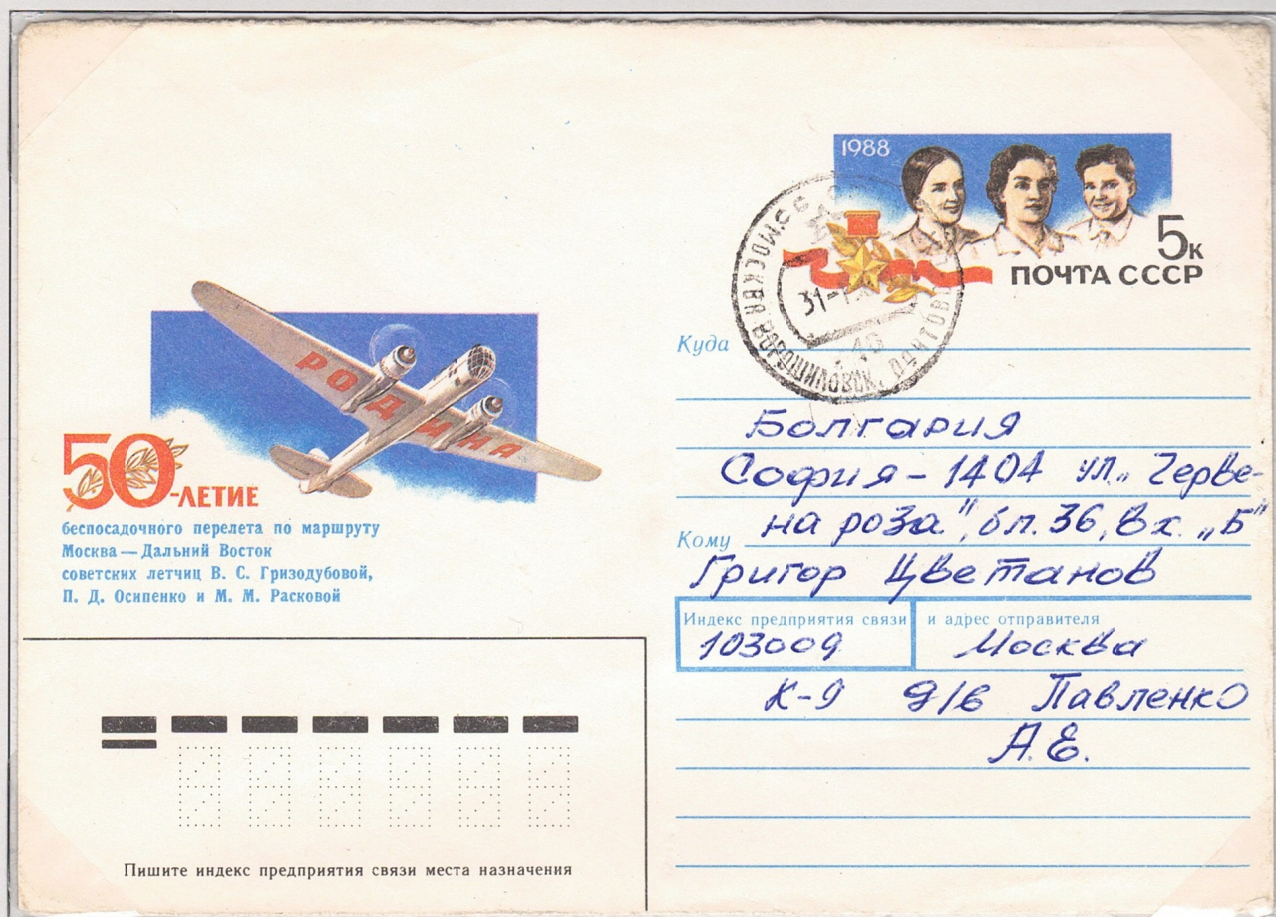 1988
5к
ПОЧТА СССР
МОСКВА ВОРОШИЛОВСК. ПОЧТОВ
31-
РОДИНА
50-ЛЕТИЕ
беспосадочного перелета по маршруту
Москва — Дальний Восток
советских летчиц В. С. Гризодубовой,
П. Д. Осипенко и М. М. Расковой
Куда
Болгария
София - 1404 ул. „Черве-
на роза", бл. 36, вх. „Б"
Кому
Григор Цветанов
Индекс предприятия связи
и адрес отправителя
103009
Москва
К-9 д/в Павленко
А. Е.
Пишите индекс предприятия связи места назначения